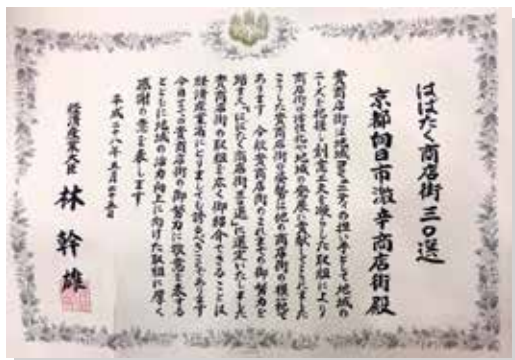 はばたく商店街三〇選
京都向日市激辛商店街殿
貴商店街は地域コミュニティの担い手として地域の
ニーズを把握し創意工夫を凝らした取組により
商店街の活性化や地域の発展に貢献してこられました
こうした貴商店街の姿勢は他の商店街の模範で
あります 今般貴商店街のこれまでの御努力を
踏まえ「はばたく商店街三〇選」に選定いたしました
貴商店街の取組を広く御紹介できることは
経済産業省にとりましても誇るべきことであります
今日までの貴商店街の御努力に敬意を表する
とともに地域の活力向上に向けた取組に厚く
感謝の意を表します
平成二十八年五月
経済産業大臣 林 幹雄